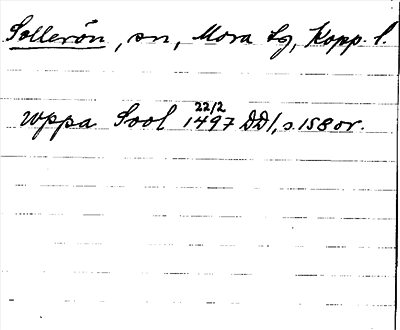 Sollerön, sn, Mora tg, Kopp. l.
wppa Sool 22/2 1497 DD1, s. 158 or.